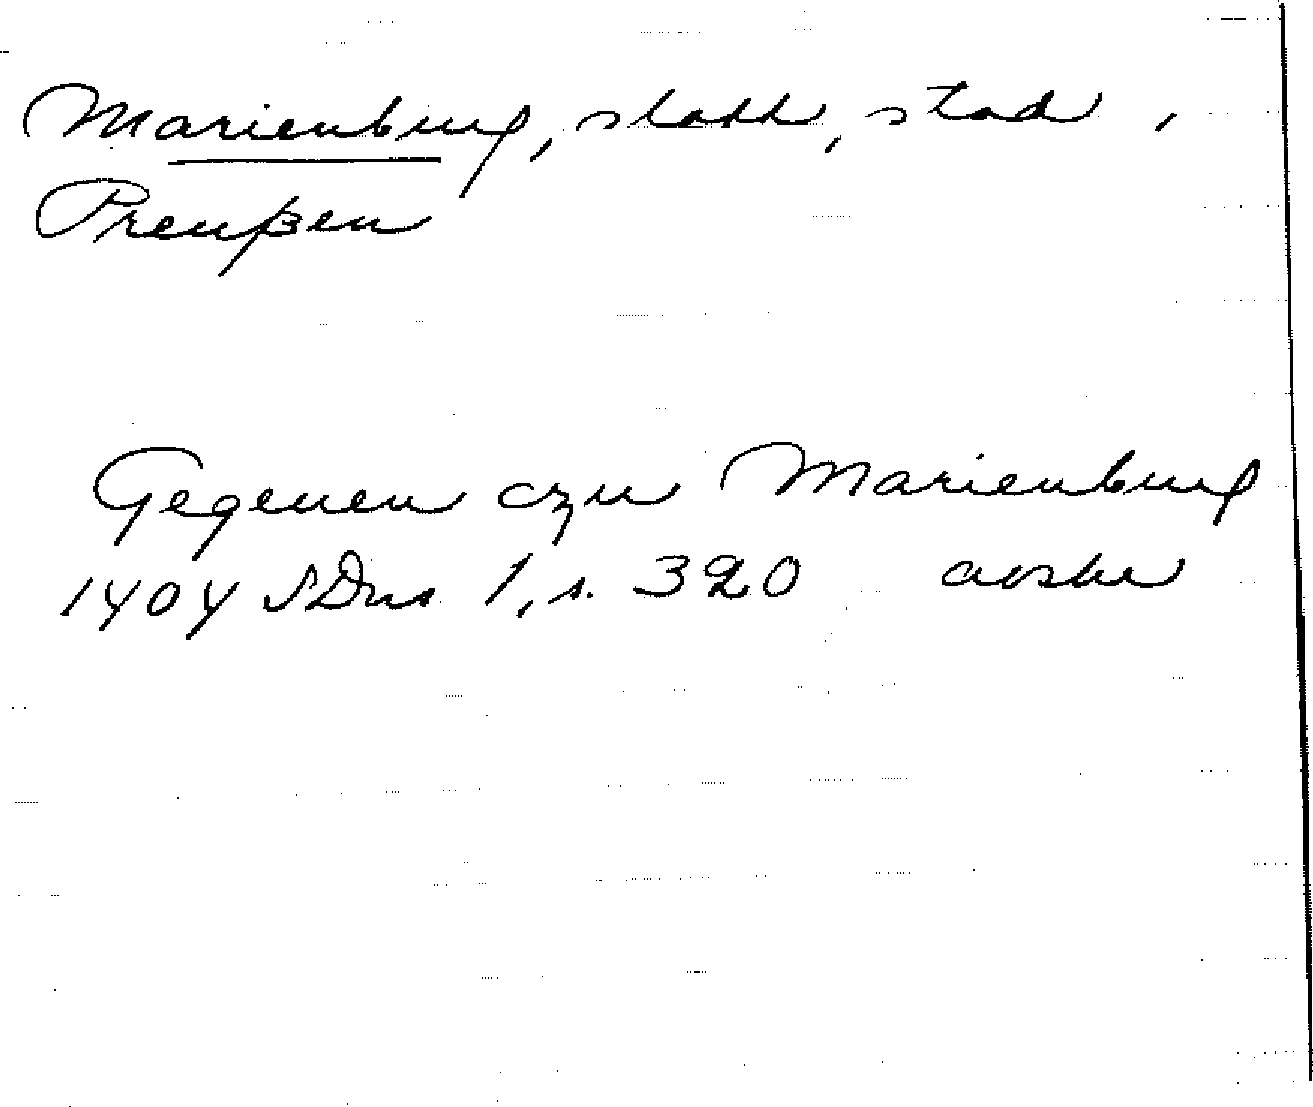 Marienburg, slott, stad,
Preußen
Gegeuen czu Marienburg
1404 SDns 1, s. 320 avskr